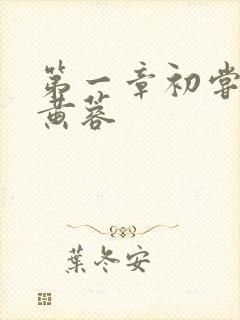 第一章初嘗
黄蓉
葉冬安